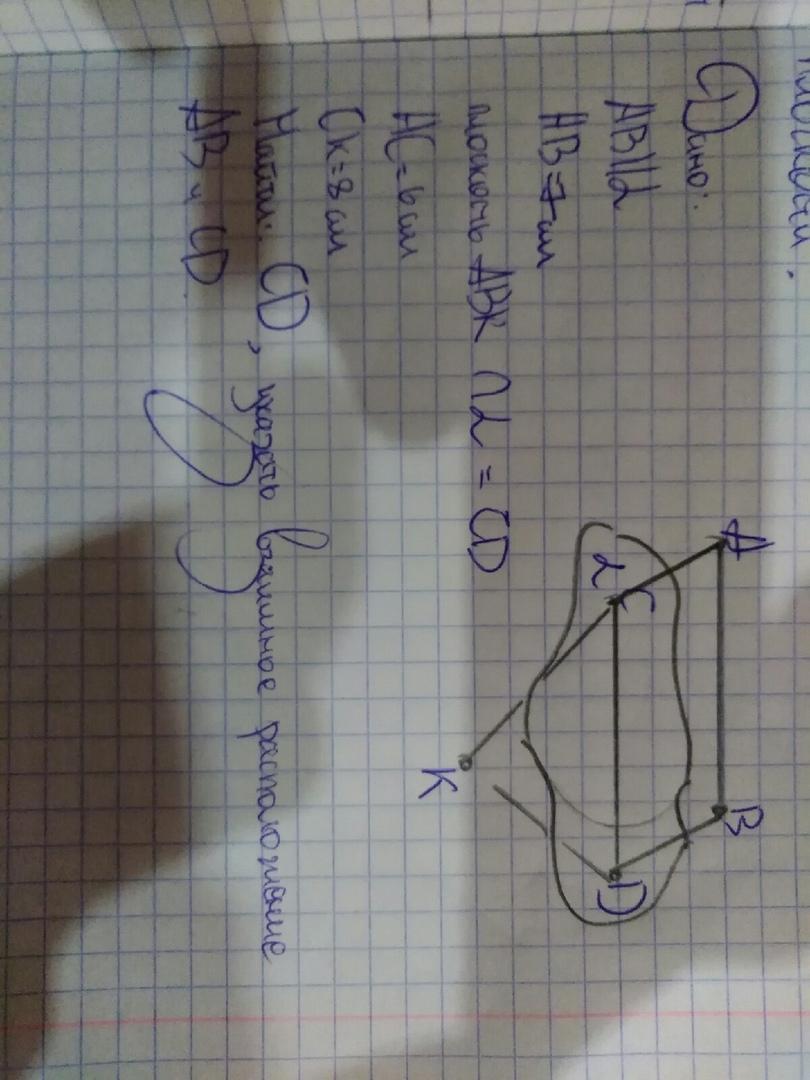 плоскости.
Дано:
AB||α
AB=7см
плоскость ABK ∩ α = CD
AC=6см
CK=8см
Найти: CD, указать взаимное расположение
AB и CD
A
B
α C
D
K